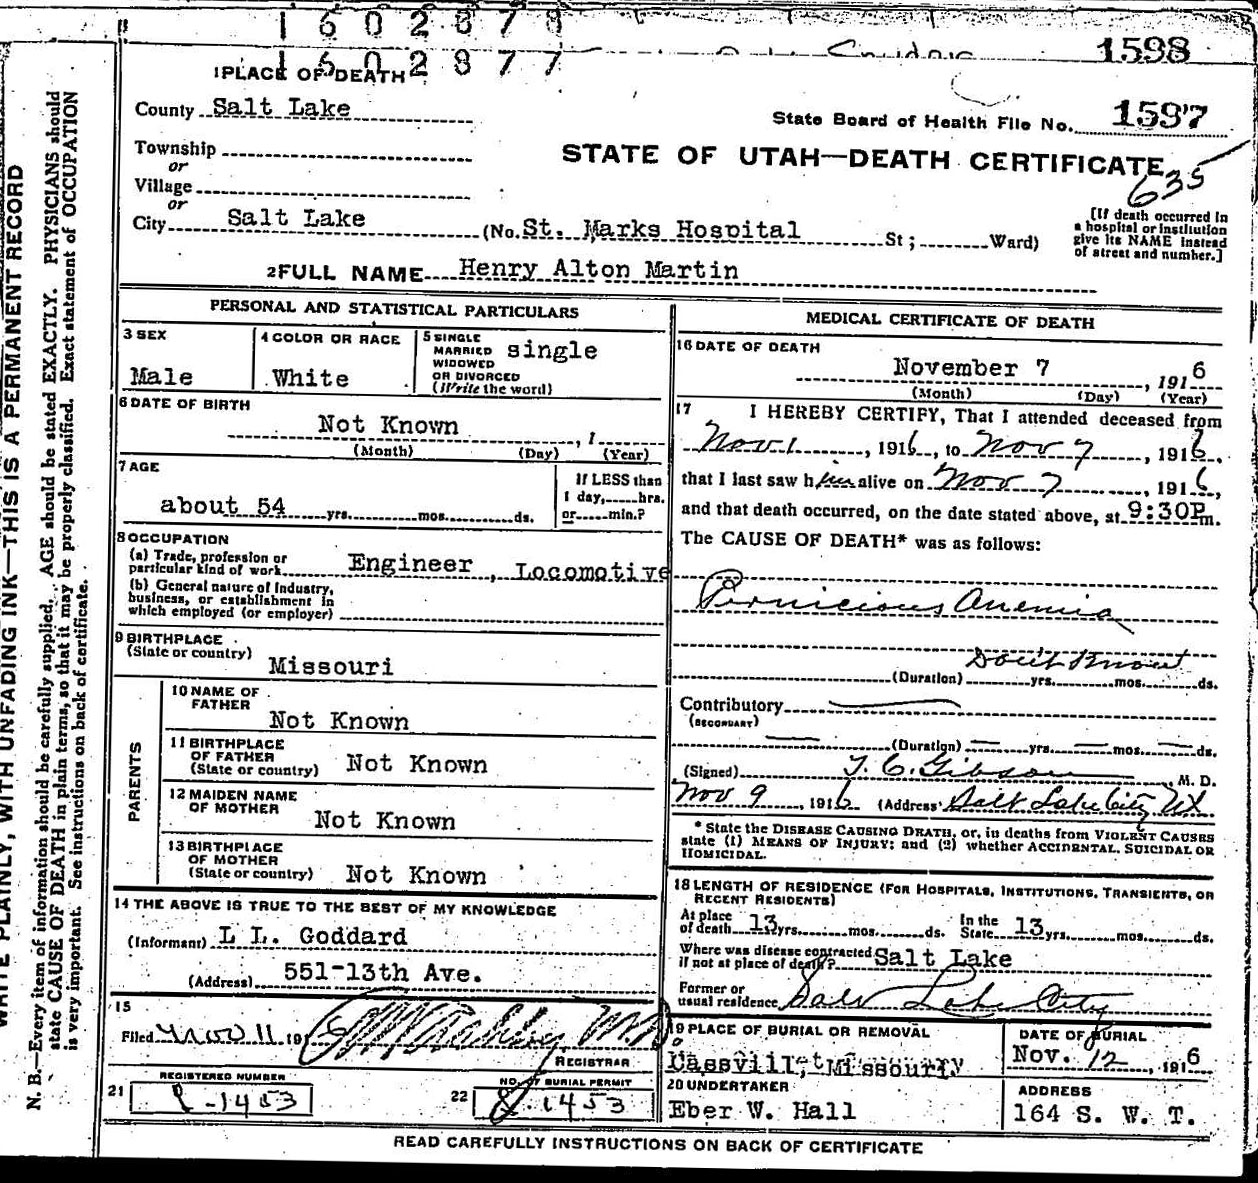 1602878
1598
1602877
1 PLACE OF DEATH
County Salt Lake
State Board of Health File No. 1597
Township
or
STATE OF UTAH—DEATH CERTIFICATE
635
Village
or
City Salt Lake (No. St. Marks Hospital St; Ward)
[If death occurred in
a hospital or institution
give its NAME instead
of street and number.]
2 FULL NAME Henry Alton Martin
PERSONAL AND STATISTICAL PARTICULARS
3 SEX
Male
4 COLOR OR RACE
White
5 SINGLE
MARRIED
WIDOWED
OR DIVORCED
(Write the word)
single
6 DATE OF BIRTH
Not Known , 1
(Month) (Day) (Year)
7 AGE
about 54 yrs. mos. ds.
If LESS than
1 day, hrs.
or min.?
8 OCCUPATION
(a) Trade, profession or
particular kind of work Engineer , Locomotive
(b) General nature of Industry,
business, or establishment in
which employed (or employer)
9 BIRTHPLACE
(State or country)
Missouri
PARENTS
10 NAME OF
FATHER
Not Known
11 BIRTHPLACE
OF FATHER
(State or country) Not Known
12 MAIDEN NAME
OF MOTHER
Not Known
13 BIRTHPLACE
OF MOTHER
(State or country) Not Known
14 THE ABOVE IS TRUE TO THE BEST OF MY KNOWLEDGE
(Informant) L L. Goddard
(Address) 551-13th Ave.
15
Filed Nov 11 191 6 M.D.
REGISTRAR
21 REGISTERED NUMBER
-1453
22 NO. OF BURIAL PERMIT
1453
MEDICAL CERTIFICATE OF DEATH
16 DATE OF DEATH
November 7 , 191 6
(Month) (Day) (Year)
17 I HEREBY CERTIFY, That I attended deceased from
Nov 1 , 1916, to Nov 7 , 1916,
that I last saw him alive on Nov 7 , 1916,
and that death occurred, on the date stated above, at 9:30P m.
The CAUSE OF DEATH* was as follows:
Pernicious Anemia
Don't Know
(Duration) yrs. mos. ds.
Contributory —
(SECONDARY)
— (Duration) — yrs. — mos. — ds.
(Signed) T. C. Gibson , M. D.
Nov 9 , 1916 (Address) Salt Lake City Ut
* State the DISEASE CAUSING DEATH, or, in deaths from VIOLENT CAUSES
state (1) MEANS OF INJURY; and (2) whether ACCIDENTAL, SUICIDAL OR
HOMICIDAL.
18 LENGTH OF RESIDENCE (FOR HOSPITALS, INSTITUTIONS, TRANSIENTS, OR
RECENT RESIDENTS)
At place
of death 13 yrs. mos. ds.
In the
State 13 yrs. mos. ds.
Where was disease contracted
if not at place of death? Salt Lake
Former or
usual residence Salt Lake City
19 PLACE OF BURIAL OR REMOVAL
Cassville, Missouri
DATE OF BURIAL
Nov. 12 , 191 6
20 UNDERTAKER
Eber W. Hall
ADDRESS
164 S. W. T.
READ CAREFULLY INSTRUCTIONS ON BACK OF CERTIFICATE
WRITE PLAINLY, WITH UNFADING INK—THIS IS A PERMANENT RECORD
N. B.—Every item of information should be carefully supplied. AGE should be stated EXACTLY. PHYSICIANS should
state CAUSE OF DEATH in plain terms, so that it may be properly classified. Exact statement of OCCUPATION
is very important. See instructions on back of certificate.